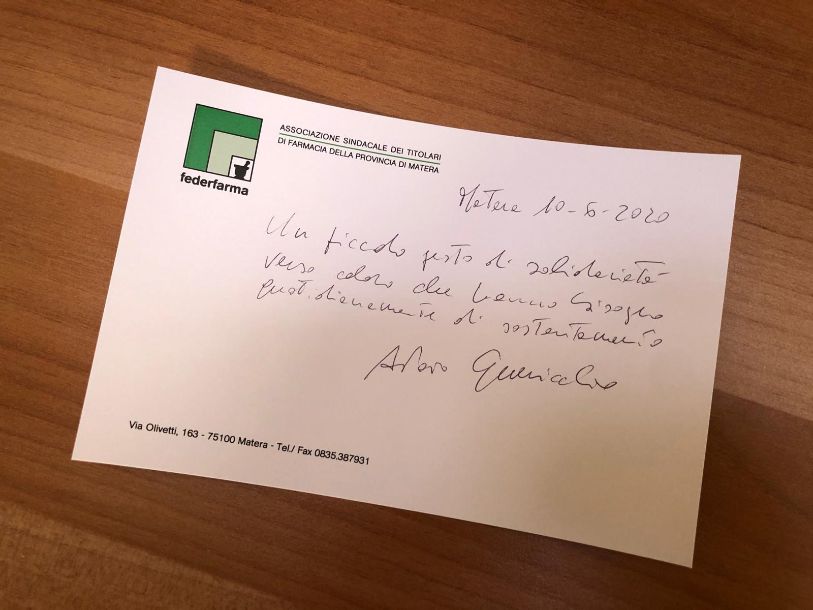 federfarma
ASSOCIAZIONE SINDACALE DEI TITOLARI
DI FARMACIA DELLA PROVINCIA DI MATERA
Matera 10-6-2020
Un piccolo gesto di solidarietà
verso coloro che hanno bisogno
quotidianamente di sostentamento
Via Olivetti, 163 - 75100 Matera - Tel./ Fax 0835.387931